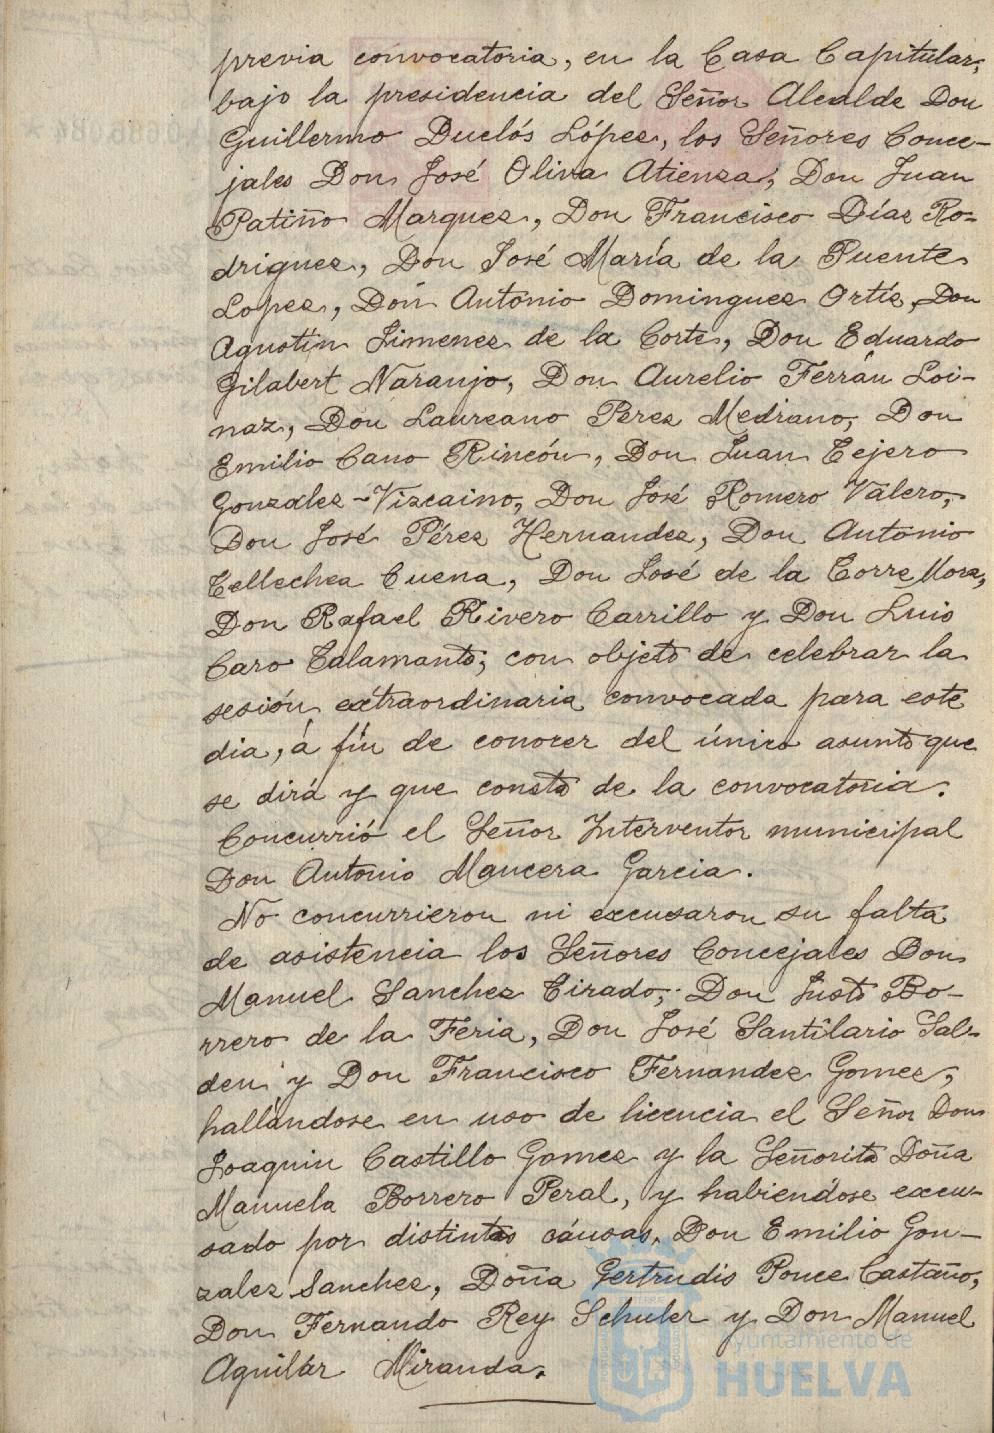 previa convocatoria, en la Casa Capitular,
bajo la presidencia del Señor Alcalde Don
Guillermo Duclós López, los Señores Conce-
jales Don José Oliva Atienza, Don Juan
Patiño Marquez, Don Francisco Díaz Ro-
driguez, Don José María de la Puente
Lopez, Don Antonio Dominguez Ortíz, Don
Agustín Jimenez de la Corte, Don Eduardo
Gilabert Naranjo, Don Aurelio Ferrán Loi-
naz, Don Laureano Perez Medrano, Don
Emilio Cano Rincón, Don Juan Tejero
Gonzalez-Vizcaino, Don José Romero Valero,
Don José Pérez Hernandez, Don Antonio
Tellechea Cuena, Don José de la Torre Mora,
Don Rafael Rivero Carrillo y Don Luis
Caro Talamanto; con objeto de celebrar la
sesión extraordinaria convocada para este
dia, á fín de conocer del único asunto que
se dirá y que consta de la convocatoria.
Concurrió el Señor Interventor municipal
Don Antonio Mancera Garcia.
No concurrieron ni excusaron su falta
de asistencia los Señores Concejales Don
Manuel Sanchez Tirado, Don Justo Bo-
rrero de la Feria, Don José Santilario Sal-
den y Don Francisco Fernandez Gomez,
hallándose en uso de licencia el Señor Don
Joaquin Castillo Gomez y la Señorita Doña
Manuela Borrero Peral, y habiendóse excu-
sado por distintas cáusas, Don Emilio Gon-
zalez Sanchez, Doña Gertrudis Ponce Castaño,
Don Fernando Rey Schuler y Don Manuel
Aguilar Miranda.
Ayuntamiento de
HUELVA